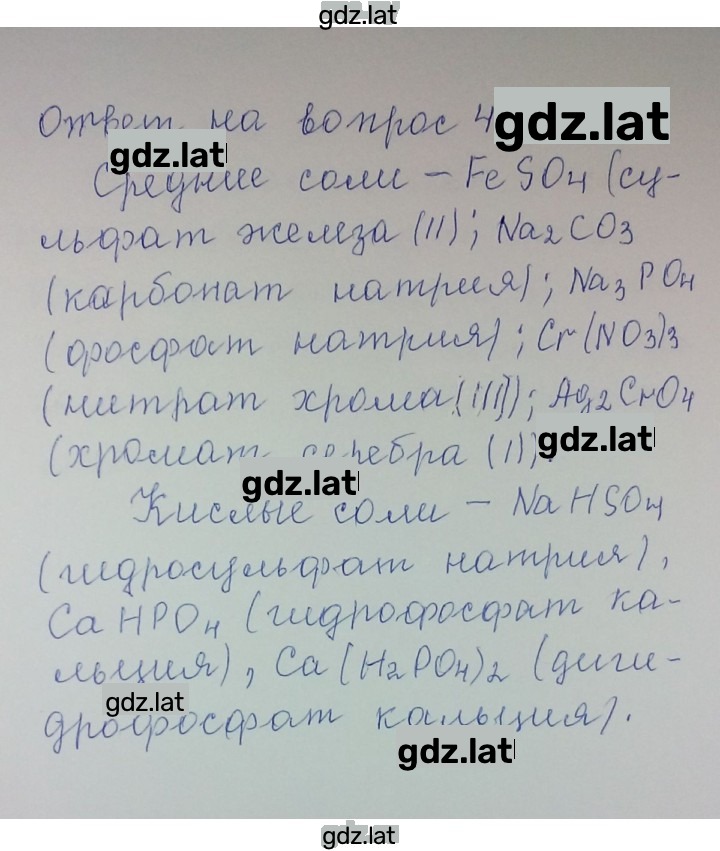 gdz.lat
Ответ на вопрос 4 gdz.lat
gdz.lat
Средние соли – FeSO4 (су-
льфат железа (II); Na2CO3
(карбонат натрия); Na3PO4
(фосфат натрия); Cr(NO3)3
(нитрат хрома (III)); Ag2CrO4
(хромат серебра (I)). gdz.lat
gdz.lat
Кислые соли – NaHSO4
(гидросульфат натрия),
CaHPO4 (гидрофосфат ка-
льция), Ca(H2PO4)2 (диги-
gdz.lat
дрофосфат кальция).
gdz.lat
gdz.lat